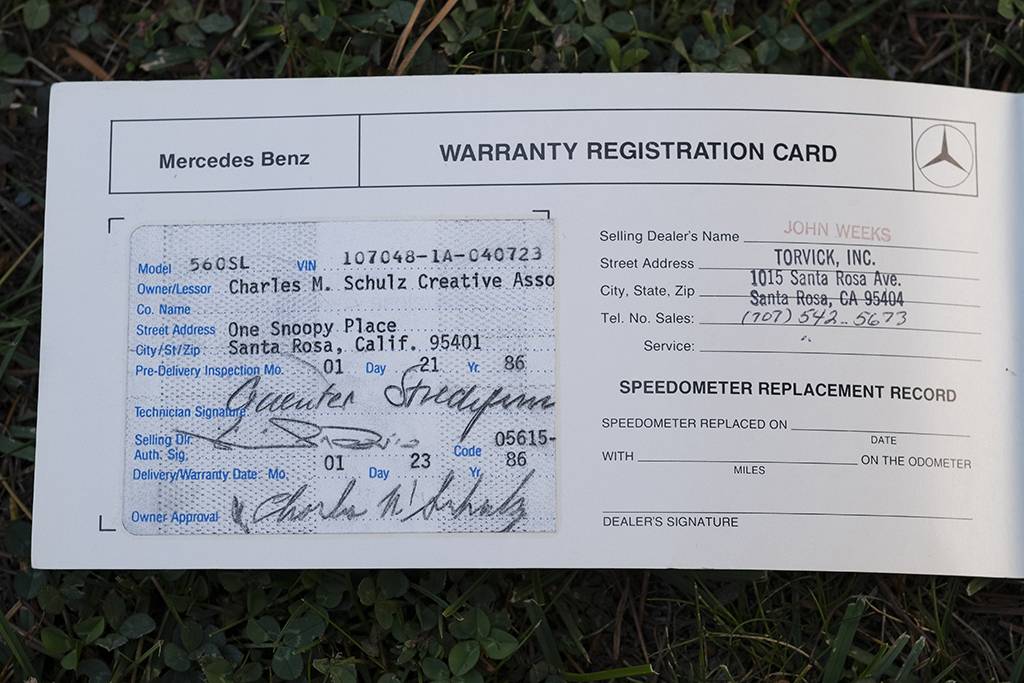 Mercedes Benz
WARRANTY REGISTRATION CARD
Model 560SL VIN 107048-1A-040723
Owner/Lessor Charles M. Schulz Creative Asso
Co. Name
Street Address One Snoopy Place
City/St/Zip Santa Rosa, Calif. 95401
Pre-Delivery Inspection Mo. 01 Day 21 Yr. 86
Technician Signature: Guenter
Selling Dlr.
Auth. Sig. Code 05615-
Delivery/Warranty Date: Mo. 01 Day 23 Yr. 86
Owner Approval Charles M Schulz
Selling Dealer's Name JOHN WEEKS
Street Address TORVICK, INC.
1015 Santa Rosa Ave.
City, State, Zip Santa Rosa, CA 95404
Tel. No. Sales: (707) 542-5673
Service:
SPEEDOMETER REPLACEMENT RECORD
SPEEDOMETER REPLACED ON
DATE
WITH ON THE ODOMETER
MILES
DEALER'S SIGNATURE